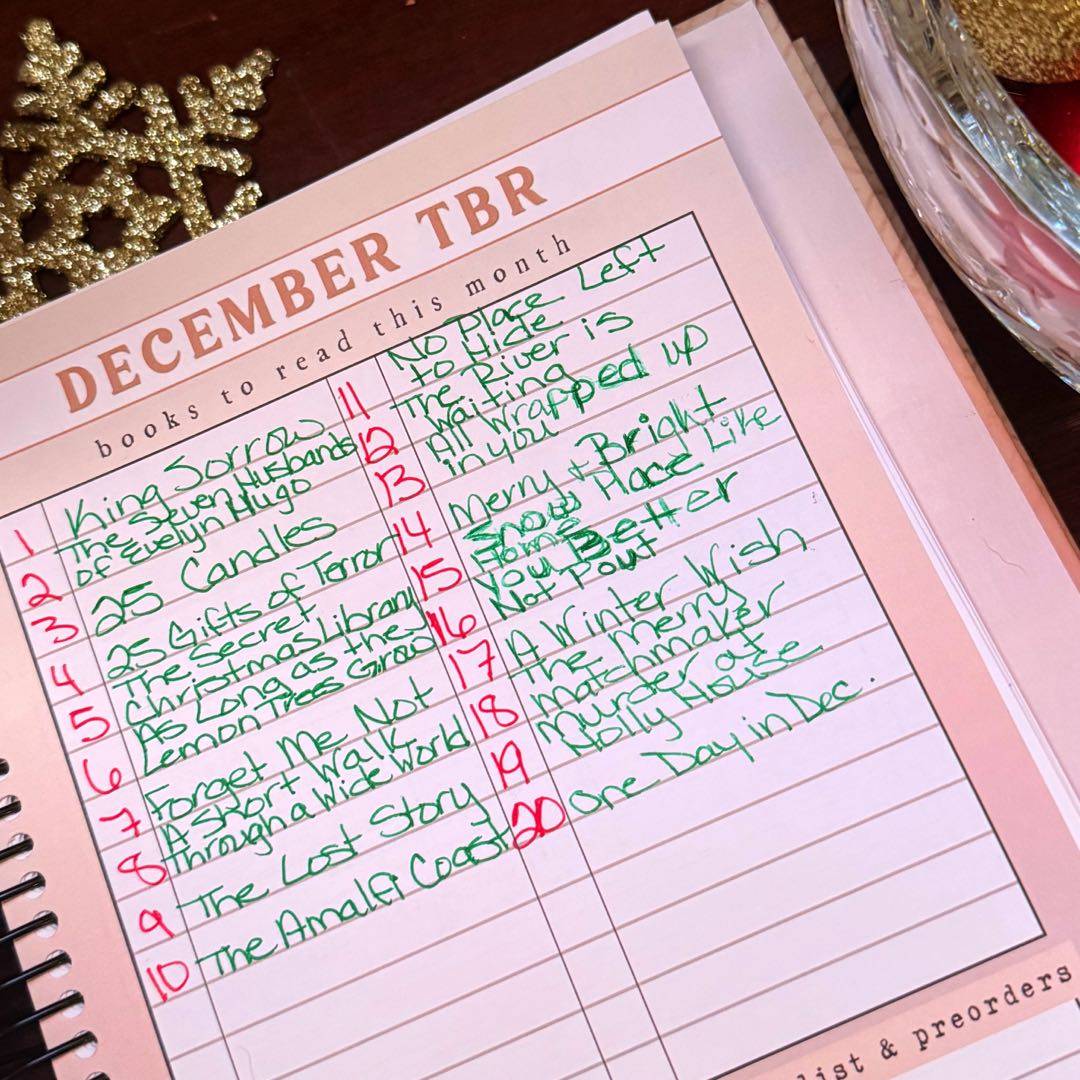 DECEMBER TBR
books to read this month
1 King Sorrow
2 The Seven Husbands
of Evelyn Hugo
3 25 Candles
4 25 Gifts of Terror
5 The Secret
Christmas Library
6 As Long as the
Lemon Trees Grow
7 Forget Me Not
8 A Short Walk
through a Wide World
9 The Lost Story
10 The Amalfi Coast
11 No Place Left
to Hide
12 The River is
Waiting
13 All Wrapped up
in you
14 Merry + Bright
15 Snow Place Like
Home
16 You Better
Not Pout
17 A Winter Wish
18 The Merry
Matchmaker
19 Murder at
Holly House
20 One Day in Dec.
list & preorders